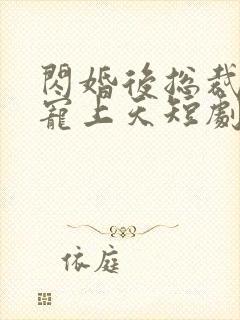 閃婚後總裁
寵上天短劇
依庭